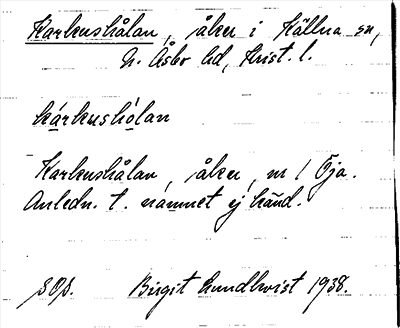 Karkushålan, åker i Källna sn,
N. Åsbo hd, Krist. l.
kárkushólan
Karkushålan, åker, nr 1 Öja.
Anledn. t. namnet ej känd.
SOS. Birgit Lundkvist 1938.